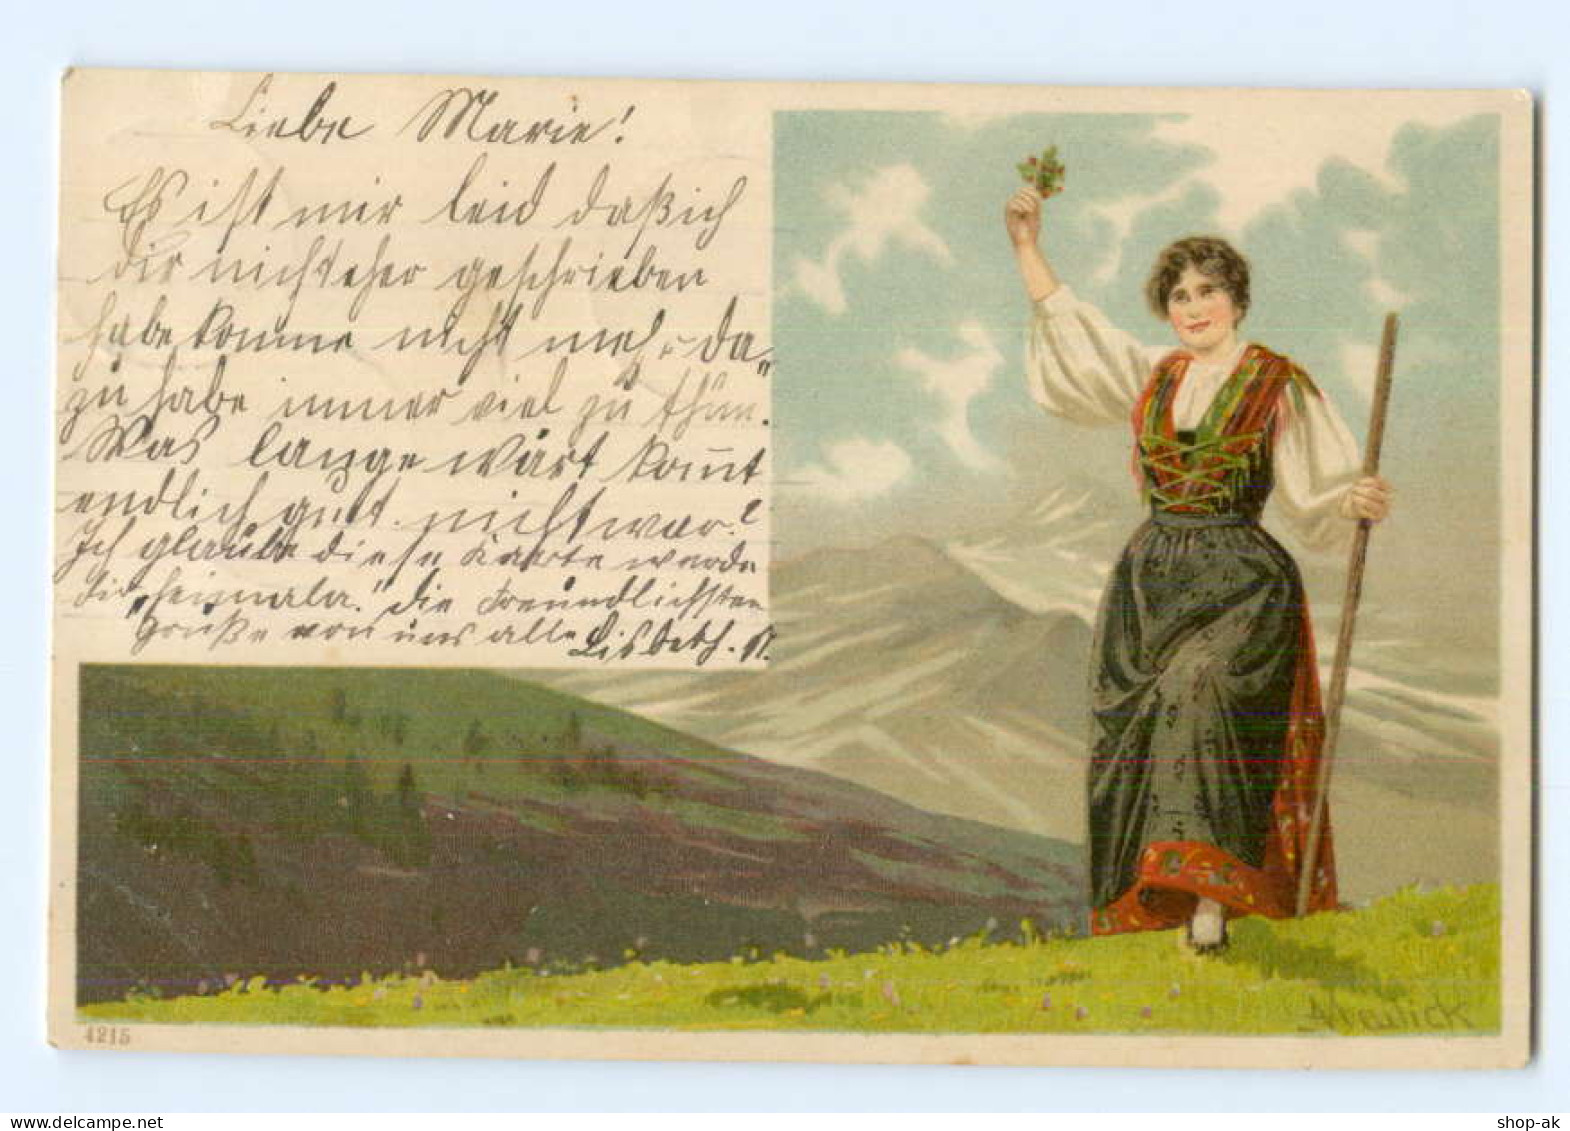 Liebe Marie!
Es ist mir leid daß ich
dir nicht eher geschrieben
habe komme nicht da-
zu habe immer viel zu thun.
Was lange wärt komt
endlich gut. nicht war?
Ich glaube diese Kaarte werde
dir die Freundlichsten
Grüße von uns alle Lisbeth. K.
4215
shop-ak